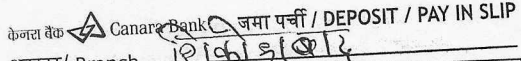 केनरा बैंक Canara Bank जमा पर्ची / DEPOSIT / PAY IN SLIP
Branch